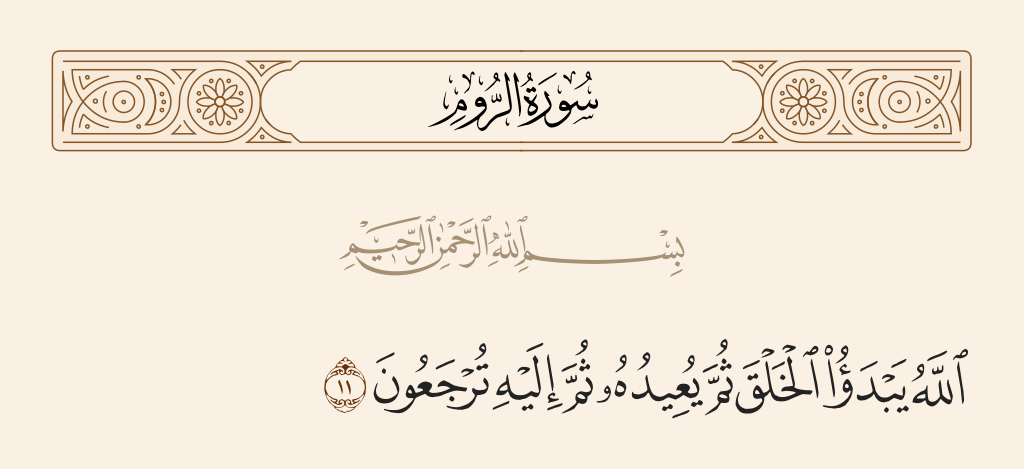 سُورَةُ الرُّومِ
بِسْمِ ٱللَّهِ ٱلرَّحْمَٰنِ ٱلرَّحِيمِ
ٱللَّهُ يَبْدَؤُا۟ ٱلْخَلْقَ ثُمَّ يُعِيدُهُۥ ثُمَّ إِلَيْهِ تُرْجَعُونَ ١١